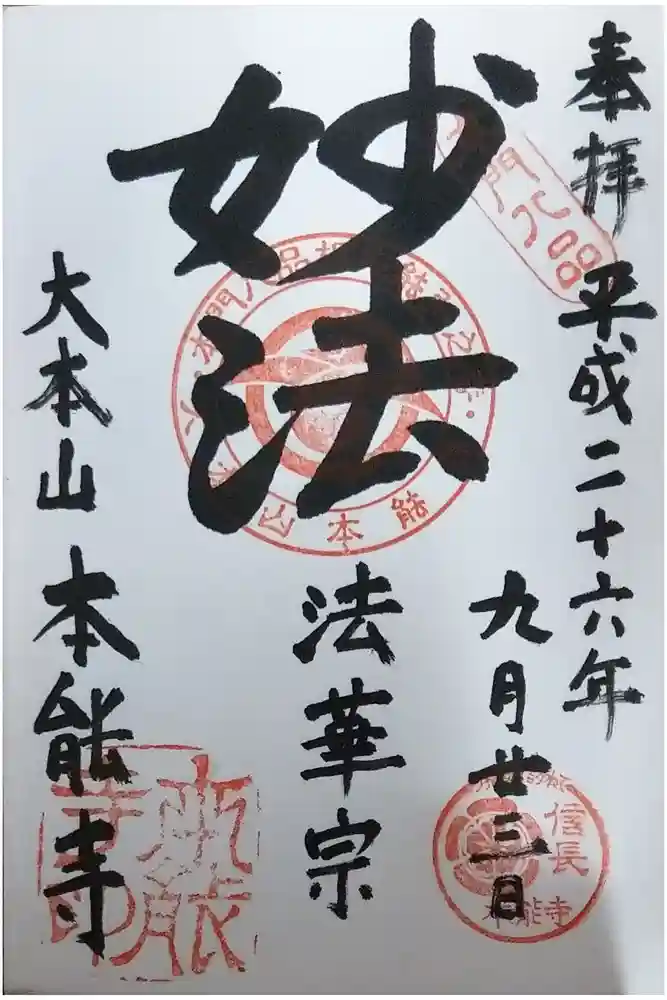 奉拝 平成二十六年
九月廿三日
妙法
法華宗
大本山 本能寺
門八品
信長
本能寺